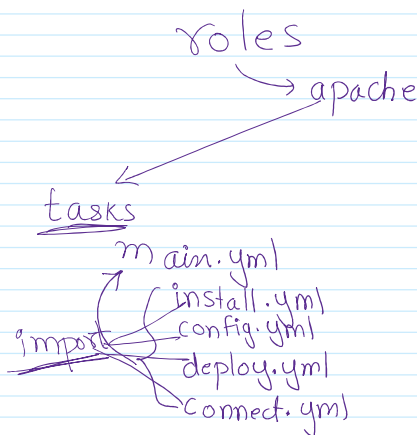 roles
apache
tasks
main.yml
install.yml
config.yml
import
deploy.yml
connect.yml